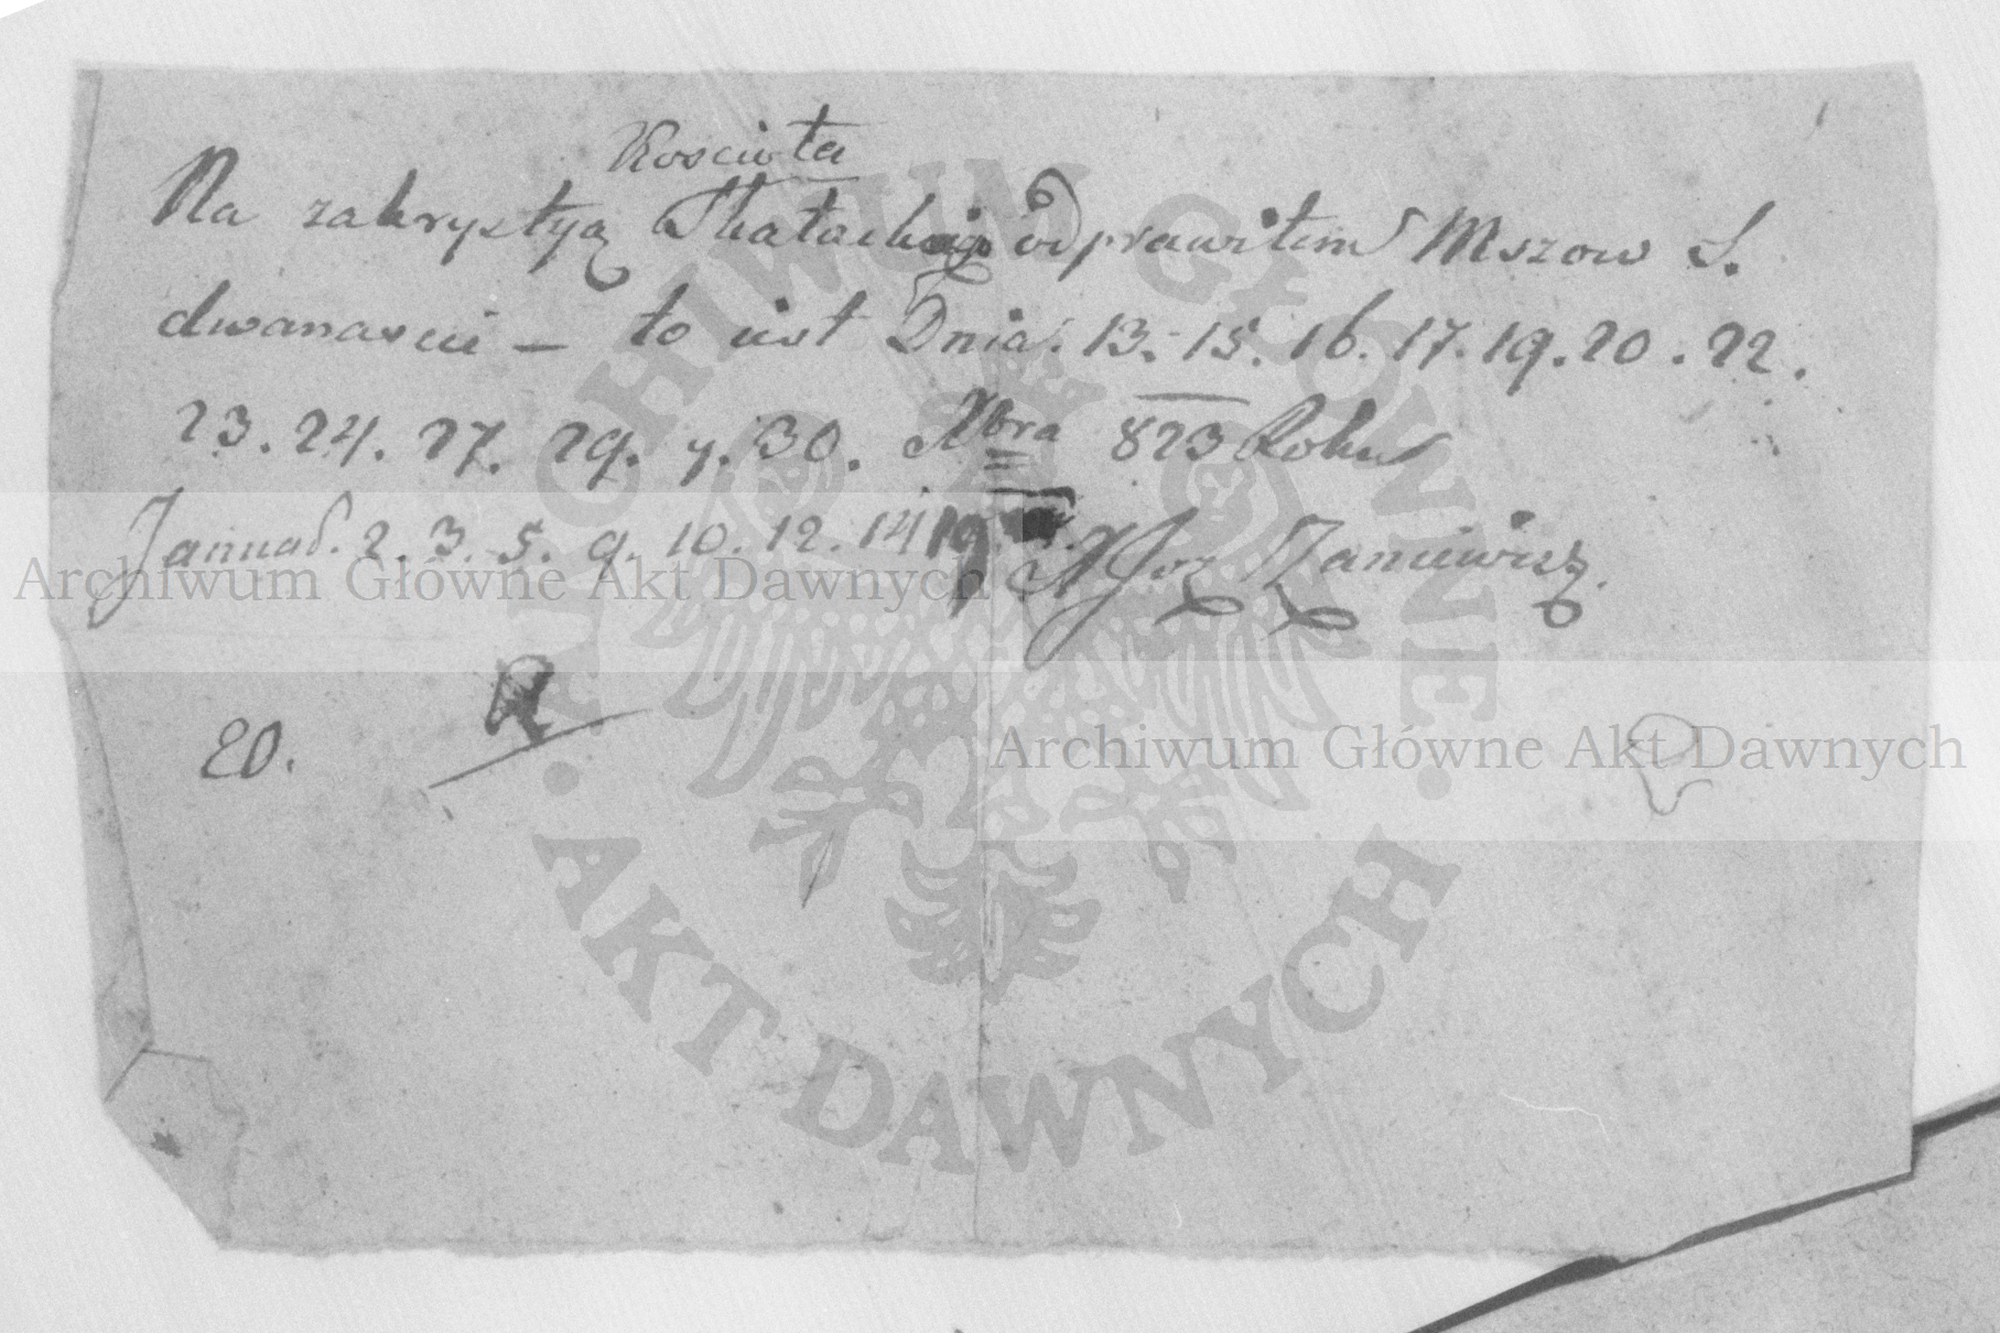 Koscioła
Na zakrystyą Skałackiego odprawiłem Mszow S.
dwanascie – to iest Dnia. 13. 15. 16. 17. 19. 20. 22.
23. 24. 27. 29. y. 30. Xbra 823 Roku
Januar. 2. 3. 5. 9. 10. 12. 14 19 X Joz Zaniewicz.
20.
ARCHIWUM GŁÓWNE
AKT DAWNYCH
Archiwum Główne Akt Dawnych
Archiwum Główne Akt Dawnych